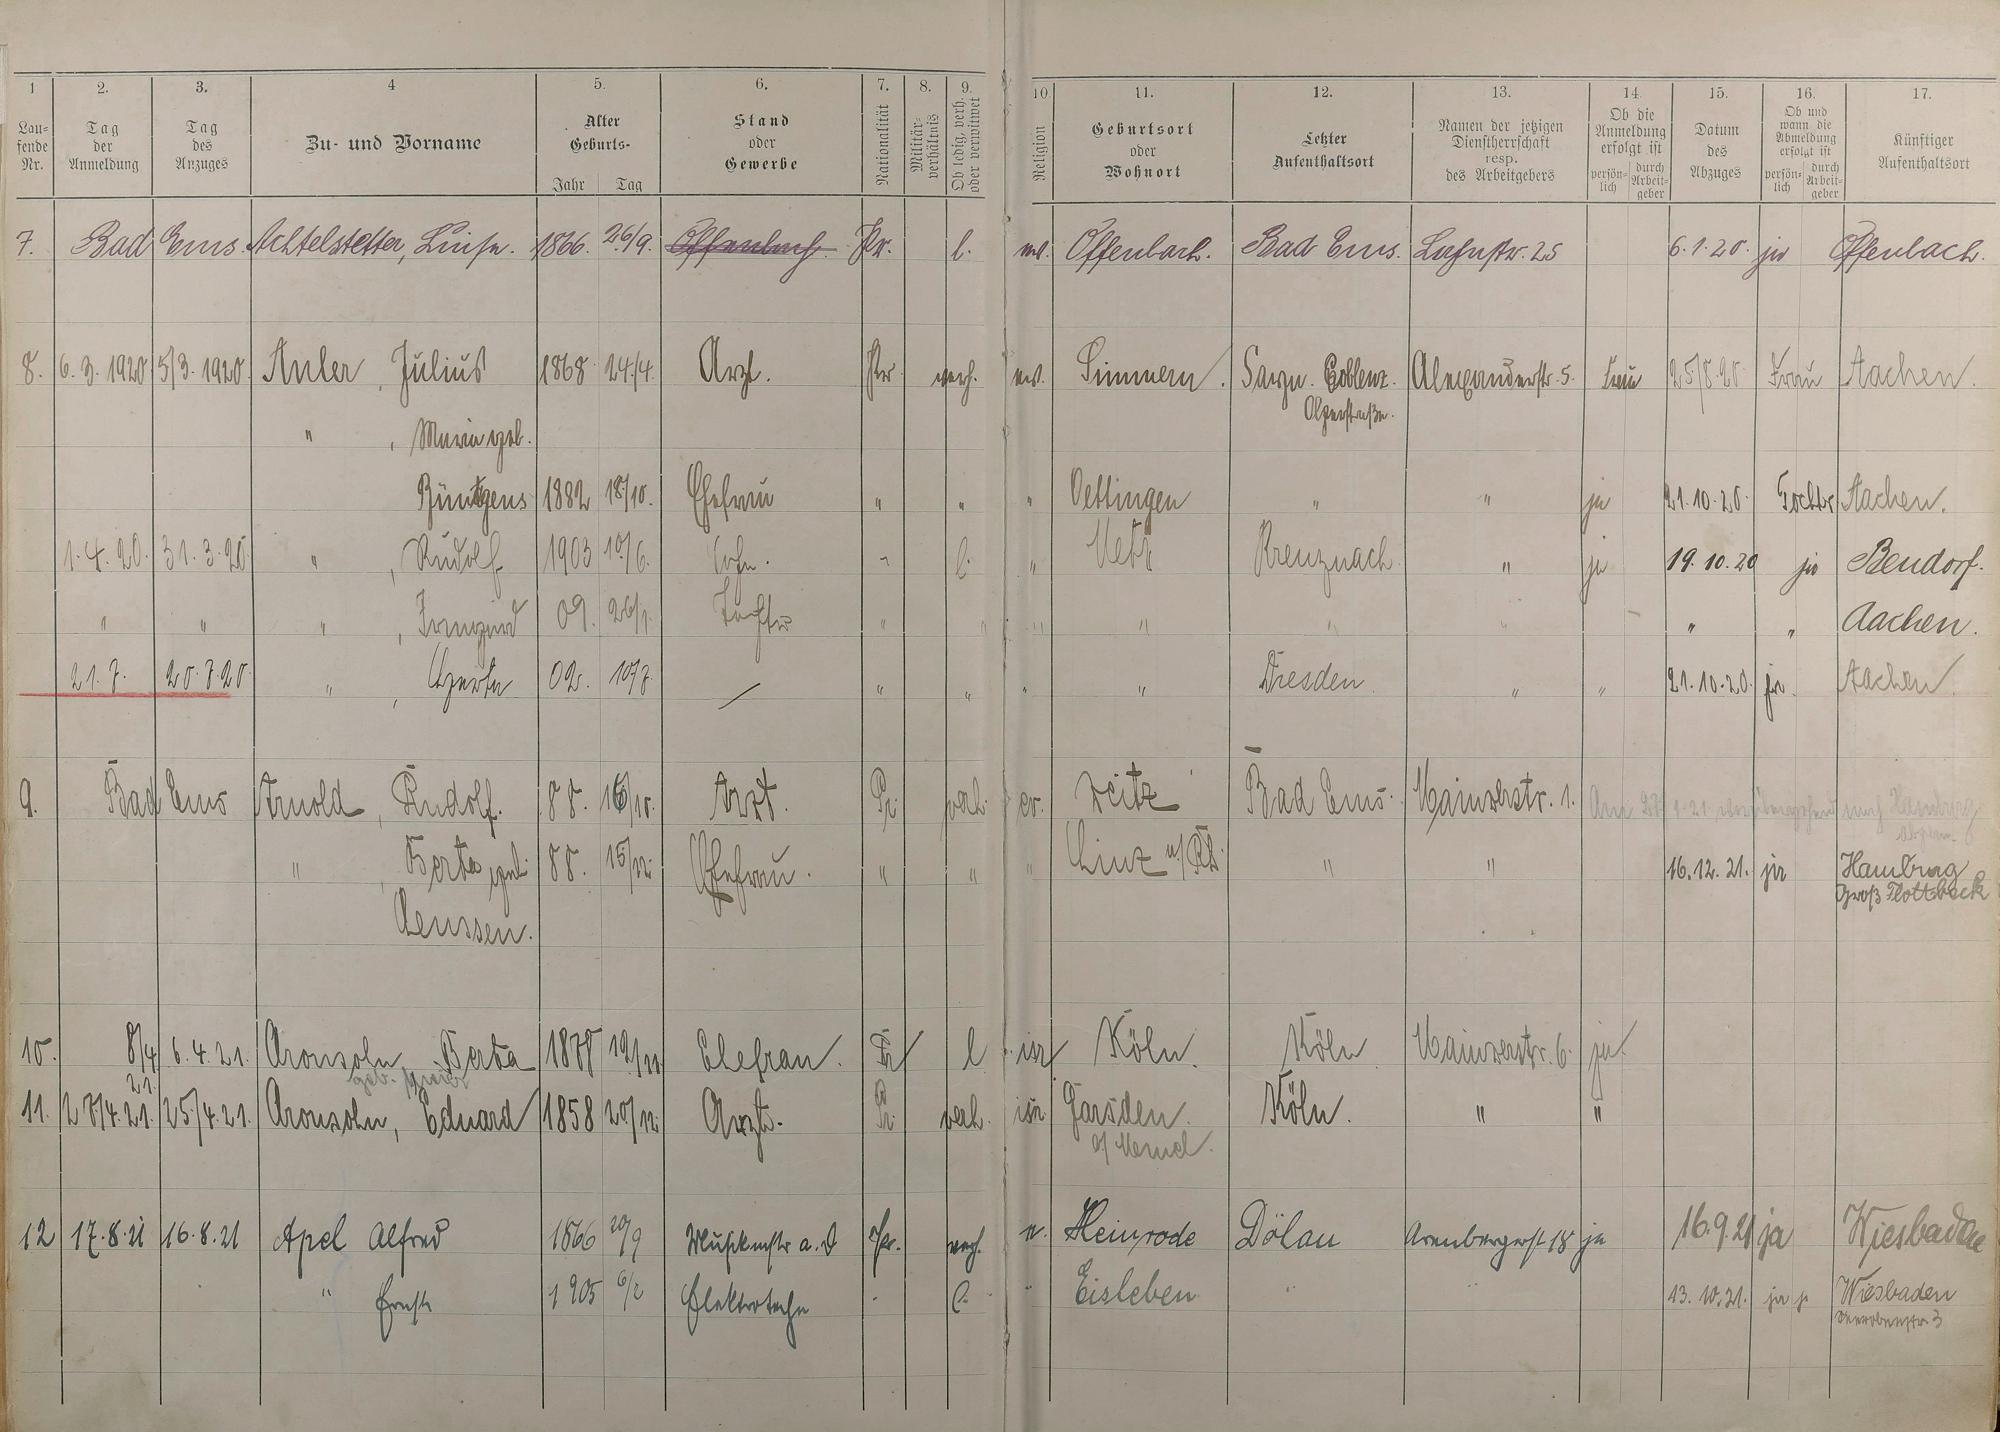 1 2. 3. 4 5. 6. 7. 8. 9. 10 11. 12. 13. 14. 15. 16. 17.
Lau-fende Nr. Tag der Anmeldung Tag des Anzuges Zu- und Vorname Alter Geburts- Jahr Tag Stand oder Gewerbe Nationalität Militär-verhältnis Ob ledig, verh. oder verwitwet Religion Geburtsort oder Wohnort Letzter Aufenthaltsort Namen der jetzigen Dienstherrschaft resp. des Arbeitgebers Ob die Anmeldung erfolgt ist persön-lich durch Arbeit-geber Datum des Abzuges Ob und wann die Abmeldung erfolgt ist persön-lich durch Arbeit-geber Künftiger Aufenthaltsort
7. Bad Ems. Achtelstetter, Luise. 1866. 26/9. Offenbach Pr. l. Offenbach. Bad Ems. Lahnstr. 25 6.1.20. ja Offenbach.
8. 6.3.1920 5/3.1920. Anler, Julius 1868 24/4. Arzt. Pr. verh. ev. Simmern. Sayn. Coblenz. Alexanderstr. 5. Frau 25/8.20 Frau Aachen.
" , Maria geb.
Büntgens 1882 18/10. Ehefrau " " " Oettingen " " ja 21.10.20. Tochter Aachen.
1.4.20. 31.3.20 " , Rudolf 1903 10/6. Sohn. " l. " Metz Kreuznach " ja 19.10.20 ja Bendorf.
" " " , Irmgard 09. 26/1. Tochter " " " " " " " " Aachen.
21.7. 20.7.20. " , Gerta 02. 10/7. — " " " " Dresden " " 21.10.20. ja. Aachen.
9. Bad Ems Arnold, Rudolf. 88. 16/10. Arzt. Pr. verh. ev. Zeitz Bad Ems. Mainzerstr. 1.
" , Berta geb. 88. 15/12. Ehefrau. " " " Linz a/Rh. " " 16.12.21. ja Hamburg
Groß Flottbeck
Aenssen.
10. 8/4 21. 6.4.21. Aronsohn, Berta 1878 19/11 Ehefrau. Pr. l isr. Köln. Köln Mainzerstr. 6. ja.
geb.
11. 27/4.21. 25/4.21. Aronsohn, Eduard 1858 20/12. Arzt. Pr. verh. isr. Garsden Köln. " "
a/ Memel.
12 17.8.21 16.8.21 Apel Alfred 1866 20/9 a. D Pr. verh. ev. Heinrode Dölau Arenbergerst 18 ja 16.9.21 ja Wiesbaden
" Ernst 1905 6/2 Elektrotechn l. " Eisleben " " 13.10.21. ja Wiesbaden